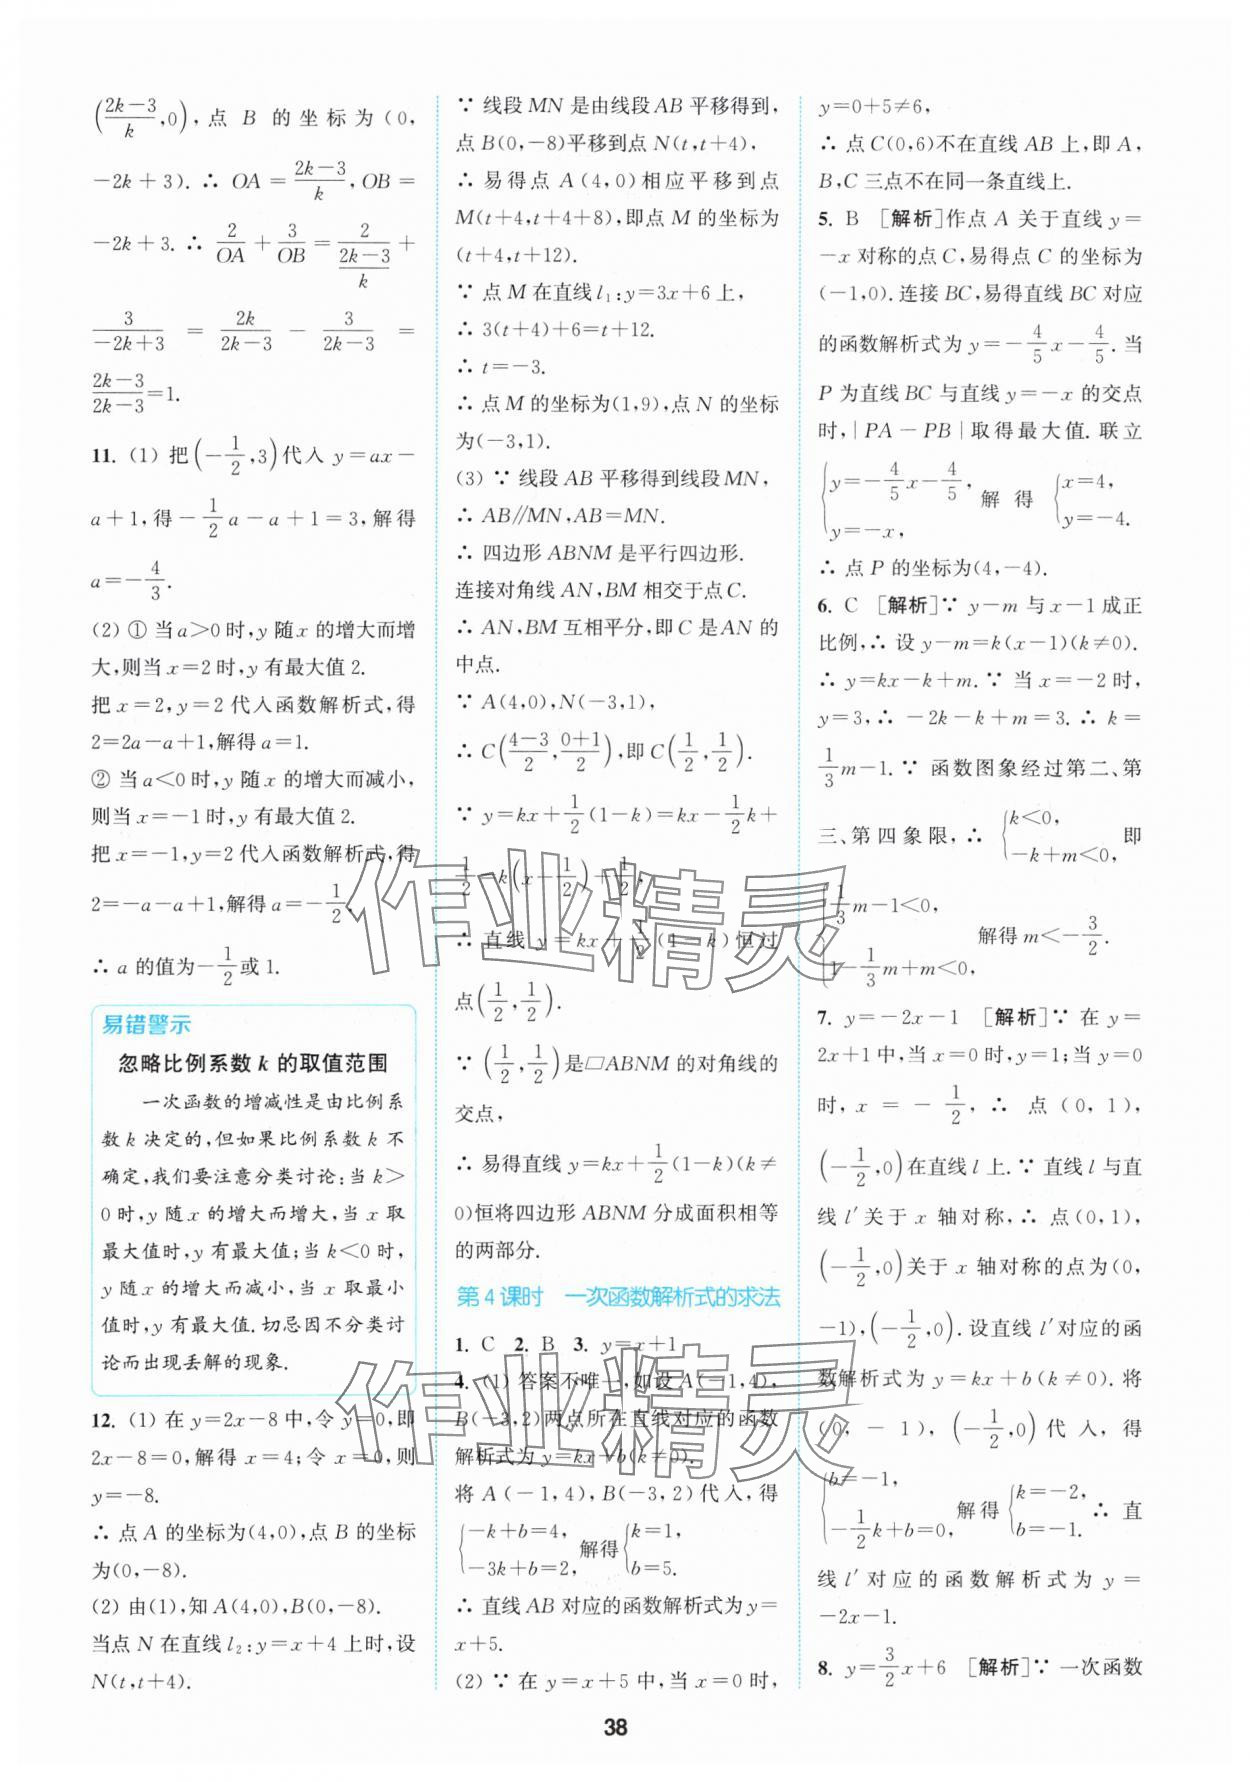 (2k−3/k,0),点 B 的坐标为(0,
−2k+3).∴ OA=2k−3/k,OB=
−2k+3.∴ 2/OA+3/OB=2/(2k−3/k)+
3/−2k+3=2k/2k−3−3/2k−3=
2k−3/2k−3=1.
11. (1) 把(−1/2,3)代入 y=ax−
a+1,得−1/2a−a+1=3,解得
a=−4/3.
(2) ① 当a>0时,y随x的增大而增
大,则当 x=2时,y有最大值2.
把 x=2,y=2代入函数解析式,得
2=2a−a+1,解得a=1.
② 当a<0时,y随x的增大而减小,
则当x=−1时,y有最大值2.
把x=−1,y=2代入函数解析式,得
2=−a−a+1,解得a=−1/2.
∴ a 的值为−1/2或1.
易错警示
忽略比例系数 k 的取值范围
一次函数的增减性是由比例系
数k决定的,但如果比例系数k不
确定,我们要注意分类讨论:当k>
0时,y随x的增大而增大,当x取
最大值时,y有最大值;当k<0时,
y随x的增大而减小,当x取最小
值时,y有最大值.切忌因不分类讨
论而出现丢解的现象.
12. (1) 在 y=2x−8中,令 y=0,即
2x−8=0,解得 x=4;令 x=0,则
y=−8.
∴ 点A的坐标为(4,0),点B的坐标
为(0,−8).
(2) 由(1),知A(4,0),B(0,−8).
当点N在直线l₂:y=x+4上时,设
N(t,t+4).
∵ 线段MN是由线段AB平移得到,
点B(0,−8)平移到点N(t,t+4),
∴ 易得点A(4,0)相应平移到点
M(t+4,t+4+8),即点M的坐标为
(t+4,t+12).
∵ 点M在直线l₁:y=3x+6上,
∴ 3(t+4)+6=t+12.
∴ t=−3.
∴ 点M的坐标为(1,9),点N的坐标
为(−3,1).
(3) ∵ 线段AB平移得到线段MN,
∴ AB∥MN,AB=MN.
∴ 四边形ABNM是平行四边形.
连接对角线AN,BM相交于点C.
∴ AN,BM互相平分,即C是AN的
中点.
∵ A(4,0),N(−3,1),
∴ C(4−3/2,0+1/2),即C(1/2,1/2).
∵ y=kx+1/2(1−k)=kx−1/2k+
1/2=k(x−1/2)+1/2,
∴ 直线 y=kx+1/2(1−k)恒过
点(1/2,1/2).
∵ (1/2,1/2)是□ABNM的对角线的
交点,
∴ 易得直线y=kx+1/2(1−k)(k≠
0)恒将四边形ABNM分成面积相等
的两部分.
第4课时 一次函数解析式的求法
1. C 2. B 3. y=x+1
4. (1) 答案不唯一,如设A(−1,4),
B(−3,2)两点所在直线对应的函数
解析式为y=kx+b(k≠0).
将A(−1,4),B(−3,2)代入,得
{−k+b=4, −3k+b=2, 解得{k=1, b=5.
∴ 直线AB对应的函数解析式为y=
x+5.
(2) ∵ 在 y=x+5中,当 x=0时,
y=0+5≠6,
∴ 点C(0,6)不在直线AB上,即A,
B,C三点不在同一条直线上.
5. B [解析]作点A关于直线y=
−x对称的点C,易得点C的坐标为
(−1,0).连接BC,易得直线BC对应
的函数解析式为y=−4/5x−4/5.当
P为直线BC与直线y=−x的交点
时,|PA−PB|取得最大值.联立
{y=−4/5x−4/5, y=−x, 解得 {x=4, y=−4.
∴ 点P的坐标为(4,−4).
6. C [解析]∵ y−m与x−1成正
比例,∴ 设 y−m=k(x−1)(k≠0).
∴ y=kx−k+m.∵ 当x=−2时,
y=3,∴ −2k−k+m=3.∴ k=
1/3m−1.∵ 函数图象经过第二、第
三、第四象限,∴ {k<0, −k+m<0, 即
{1/3m−1<0, 1−1/3m+m<0, 解得m<−3/2.
7. y=−2x−1 [解析]∵ 在 y=
2x+1中,当x=0时,y=1;当y=0
时,x=−1/2,∴ 点(0,1),
(−1/2,0)在直线l上.∵ 直线l与直
线l′关于x轴对称,∴ 点(0,1),
(−1/2,0)关于x轴对称的点为(0,
−1),(−1/2,0).设直线l′对应的函
数解析式为y=kx+b(k≠0).将
(0,−1),(−1/2,0)代入,得
{b=−1, −1/2k+b=0, 解得{k=−2, b=−1. ∴ 直
线l′对应的函数解析式为y=
−2x−1.
8. y=3/2x+6 [解析]∵ 一次函数
38
作业精灵
作业精灵